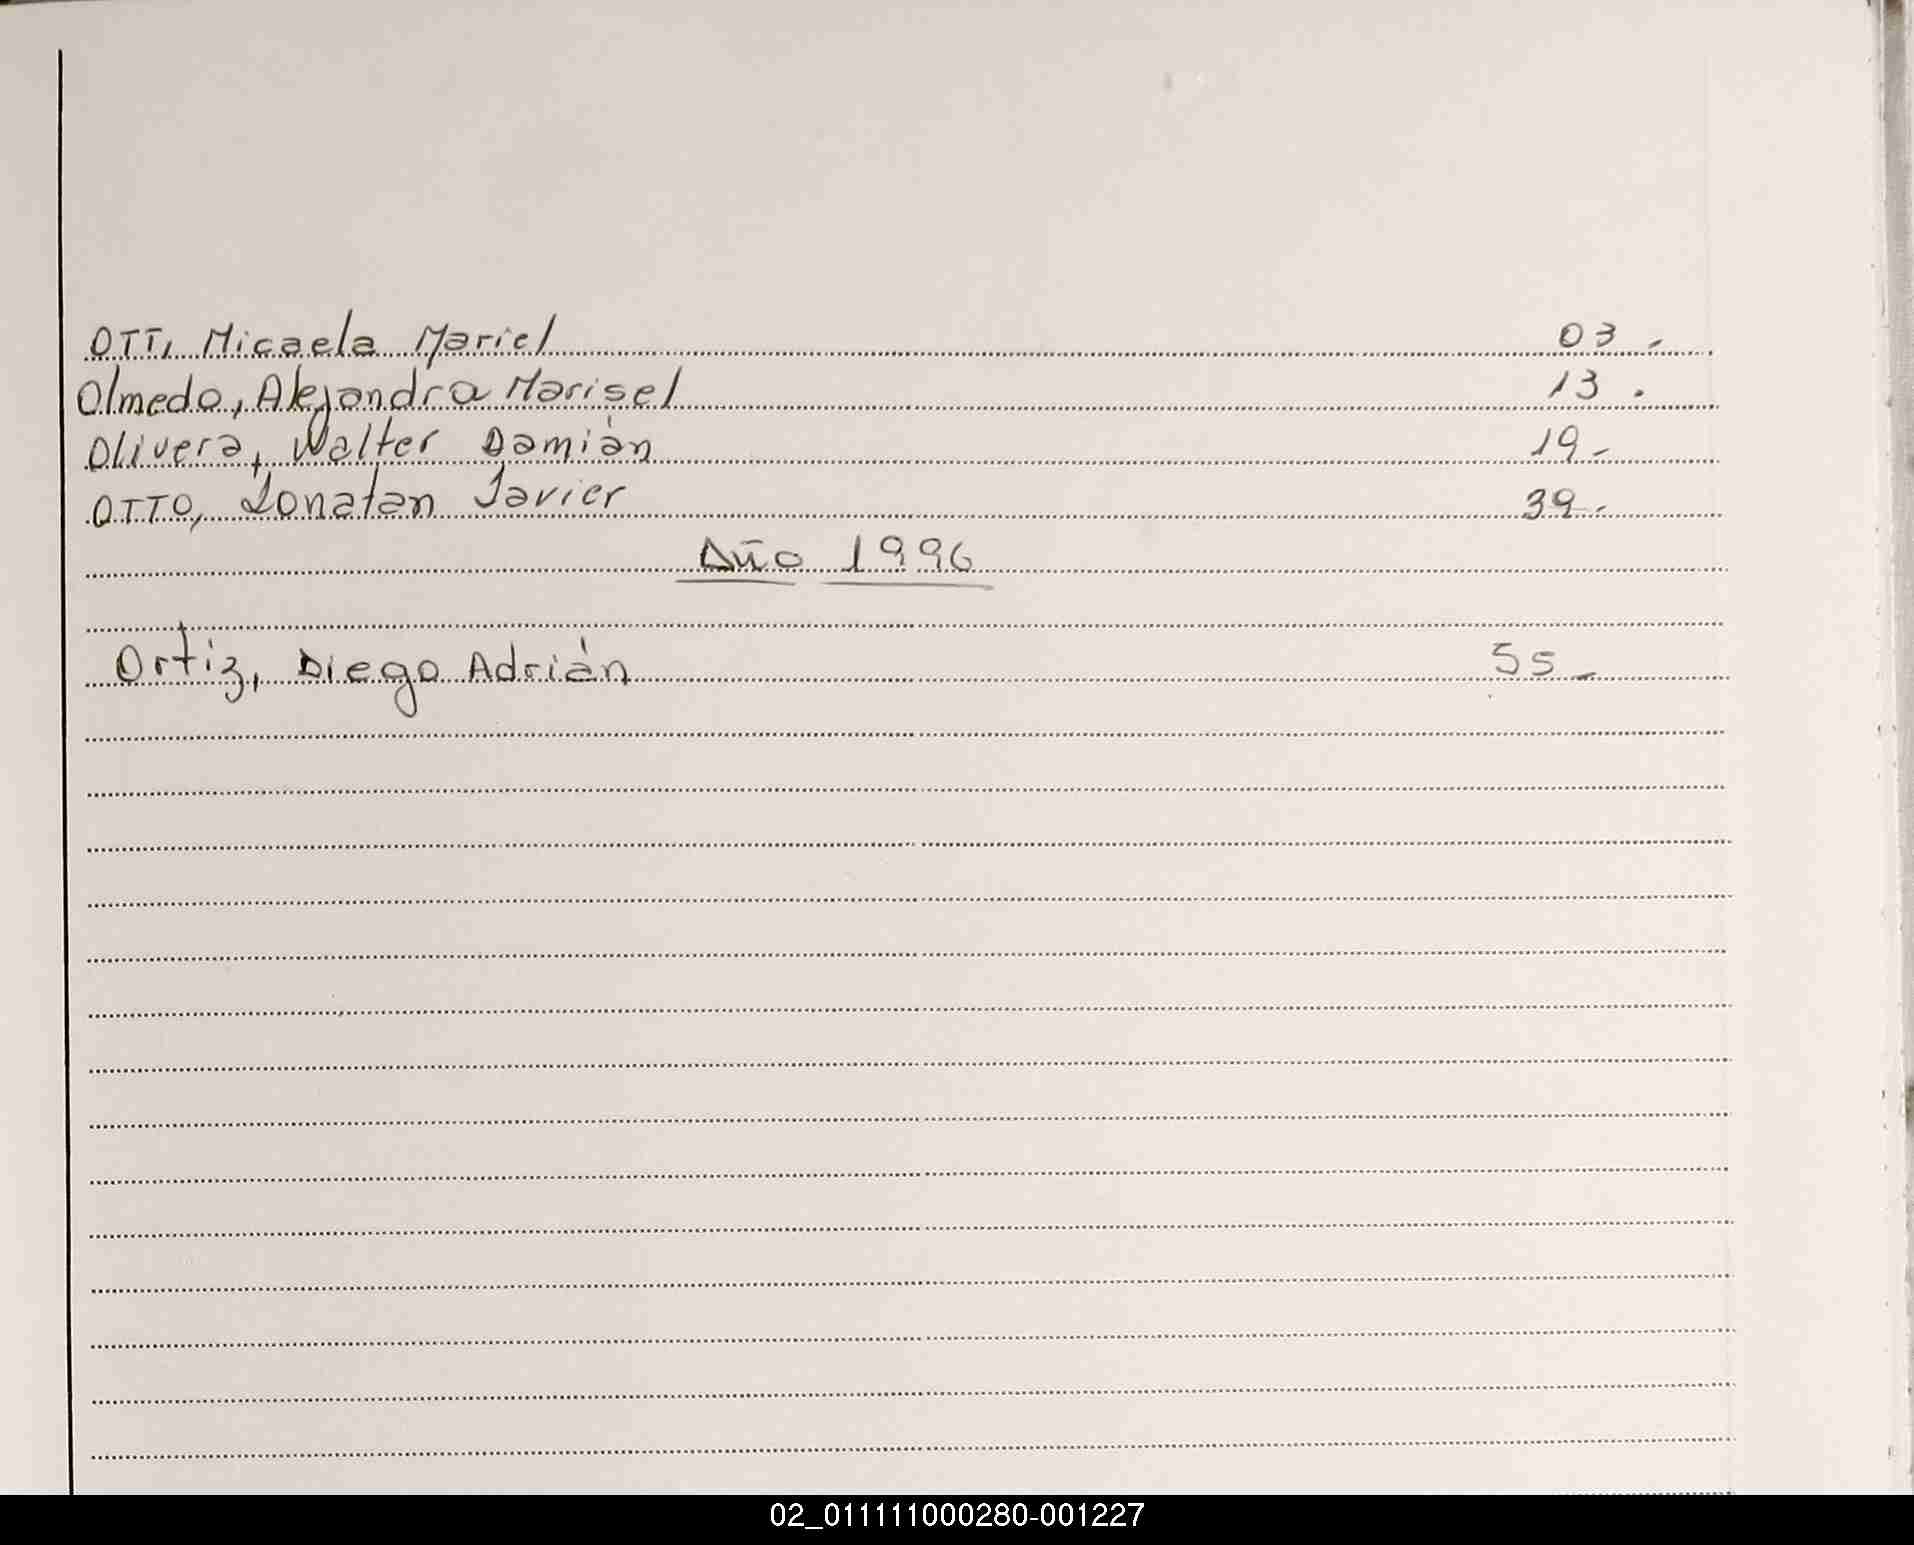 OTT, Micaela Mariel 03.-
Olmedo, Alejandra Marisel 13.
Olivera, Walter Damián 19.-
OTTO, Jonatan Javier 39.-
Año 1996
Ortiz, Diego Adrián 55.-
02_011111000280-001227